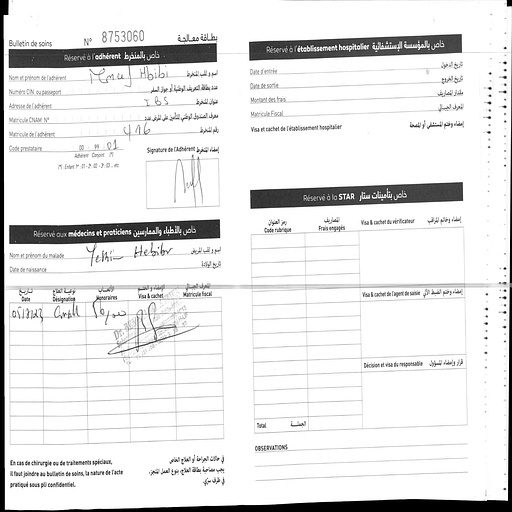 Bulletin de soins N° 8753060 بطاقة معالجة
Réservé à l'adhérent خاص بالمنخرط
Nom et prénom de l'adhérent اسم و لقب المنخرط
Numéro CIN ou passeport عدد بطاقة التعريف الوطنية أو جواز السفر
Adresse de l'adhérent IBS عنوان المنخرط
Matricule CNAM N°
Matricule de l'adhérent 416 رقم المنخرط
Code prestataire 00 99 01
Adhérent Conjoint (*)
Signature de l'Adhérent إمضاء المنخرط
Réservé aux médecins et praticiens خاص بالأطباء والممارسين
Nom et prénom du malade اسم و لقب المريض
Date de naissance تاريخ الولادة
تاريخ نوعية العلاج الأتعاب الإمضاء و الختم المعرف الجبائي
Date Désignation Honoraires Visa & cachet Matricule fiscal
En cas de chirurgie ou de traitements spéciaux,
il faut joindre au bulletin de soins, la nature de l'acte
pratiqué sous pli confidentiel.
في حالات الجراحة أو العلاج الخاص
يجب مصاحبة بطاقة العلاج، بنوع العمل المنجز،
في ظرف سري.
Réservé à l'établissement hospitalier خاص بالمؤسسة الإستشفائية
Date d'entrée تاريخ الدخول
Date de sortie تاريخ الخروج
Montant des frais مقدار المصاريف
Matricule Fiscal المعرف الجبائي
Visa et cachet de l'établissement hospitalier إمضاء وختم المستشفى أو المصحة
Réservé à la STAR خاص بتأمينات ستار
رمز العنوان المصاريف
Code rubrique Frais engagés
Visa & cachet du vérificateur إمضاء وخاتم المراقب
Visa & cachet de l'agent de saisie
Décision et visa du responsable قرار وإمضاء المسؤول
Total الجملة
OBSERVATIONS